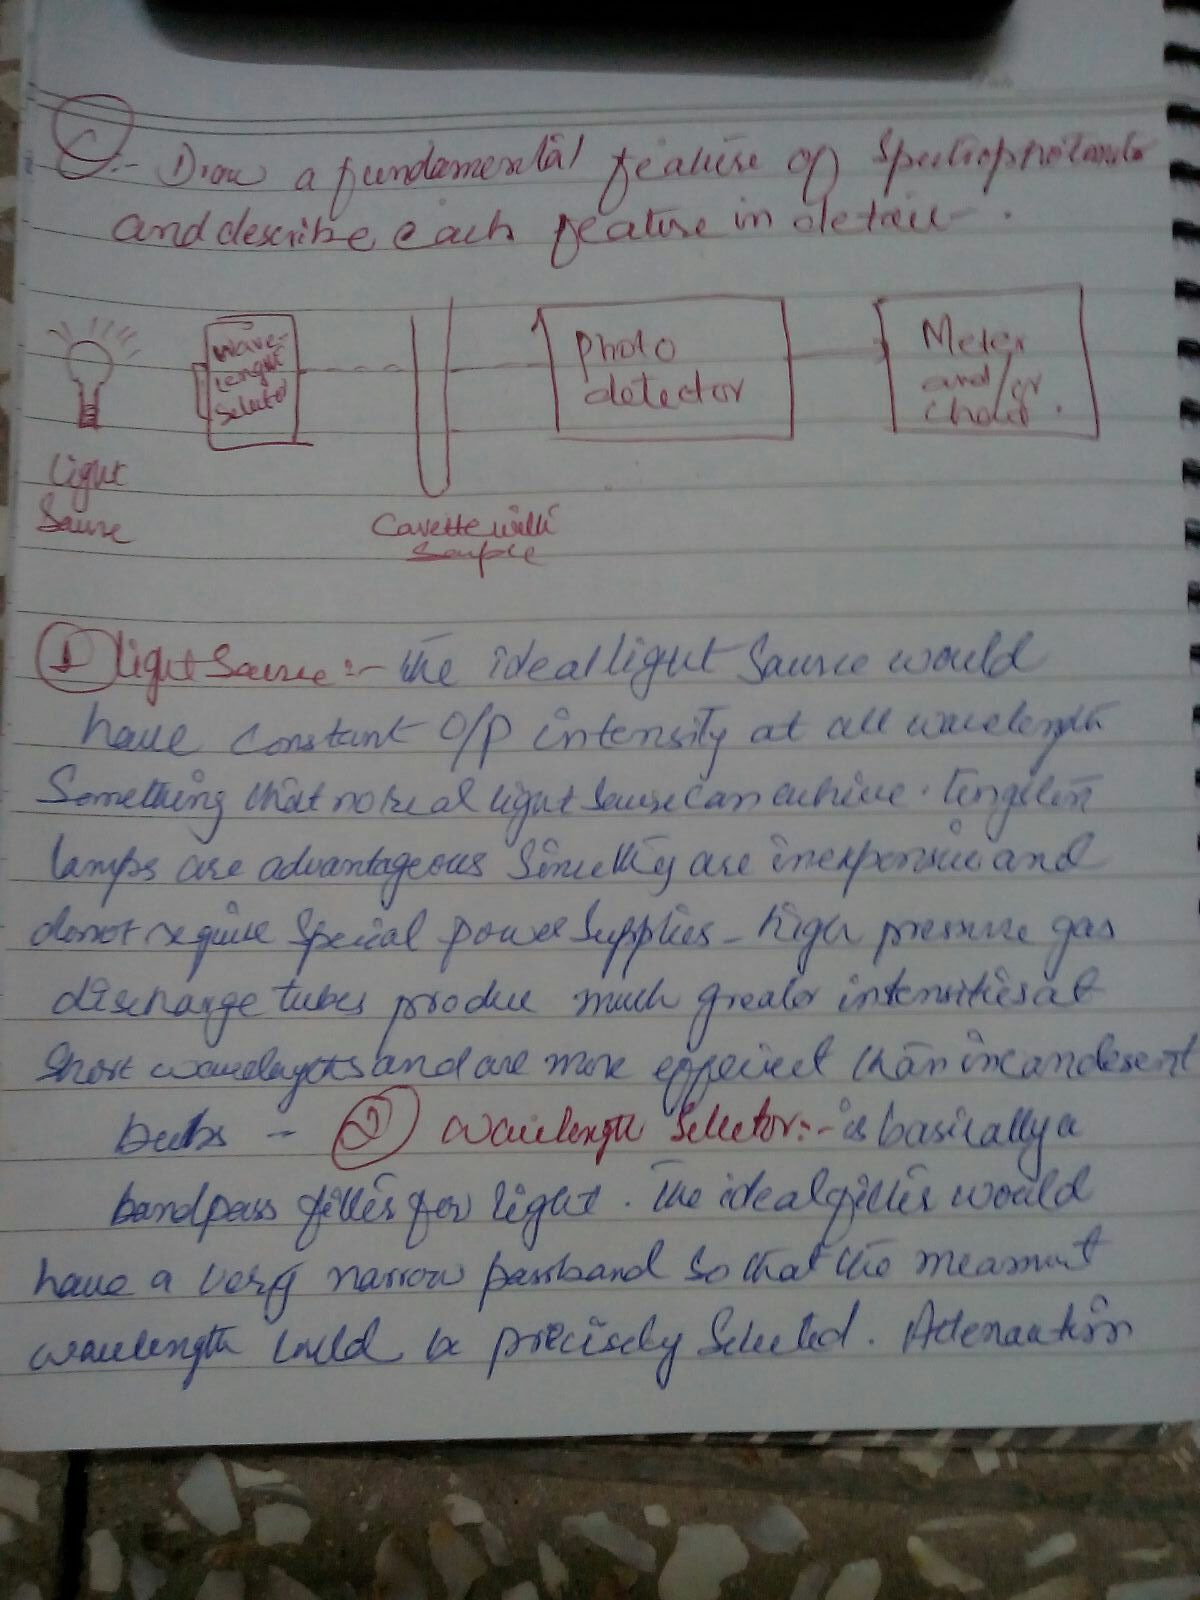 C:- Draw a fundamental feature of Spectrophotometer
and describe each feature in detail.
Wave-
lenght
Selector
Photo
detector
Meter
and/or
Chart.
Light
Sourse
Cavette with
Sample
1 light Sourse :- The ideal light Sourse would
have constant O/P intensity at all wavelength
Something that no real light Sourse can achive. Tungsten
lamps are advantageous Since they are inexpensive and
donot require Special power Supplies - high pressure gas
discharge tubes produce much greater intensities at
Short wavelengths and are more efficient than incandesent
bulbs - 2 wavelength Selector:- is basically a
bandpass filter for light. The ideal filter would
have a very narrow passband So that the
wavelength could be precisely Selected. Attenuation